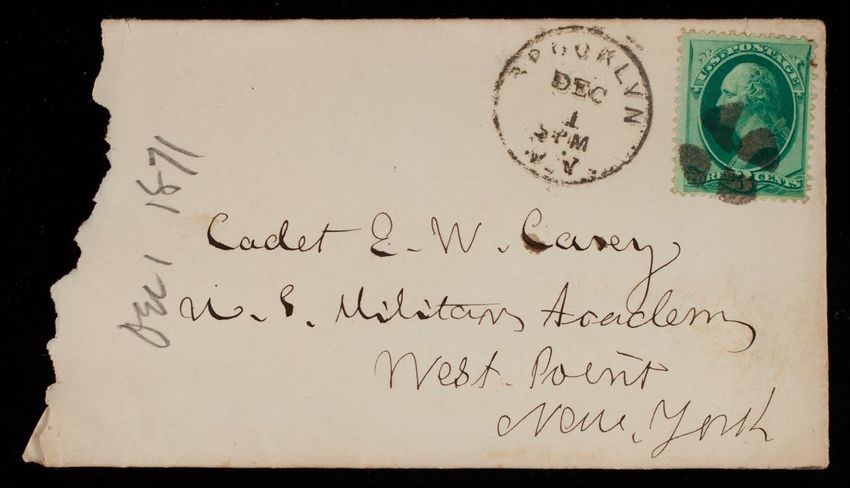 BROOKLYN
DEC
1
5 PM
N.Y.
U.S. POSTAGE
THREE 3 CENTS
Dec 1 1871
Cadet E. W. Casey
U. S. Military Academy
West Point
New York